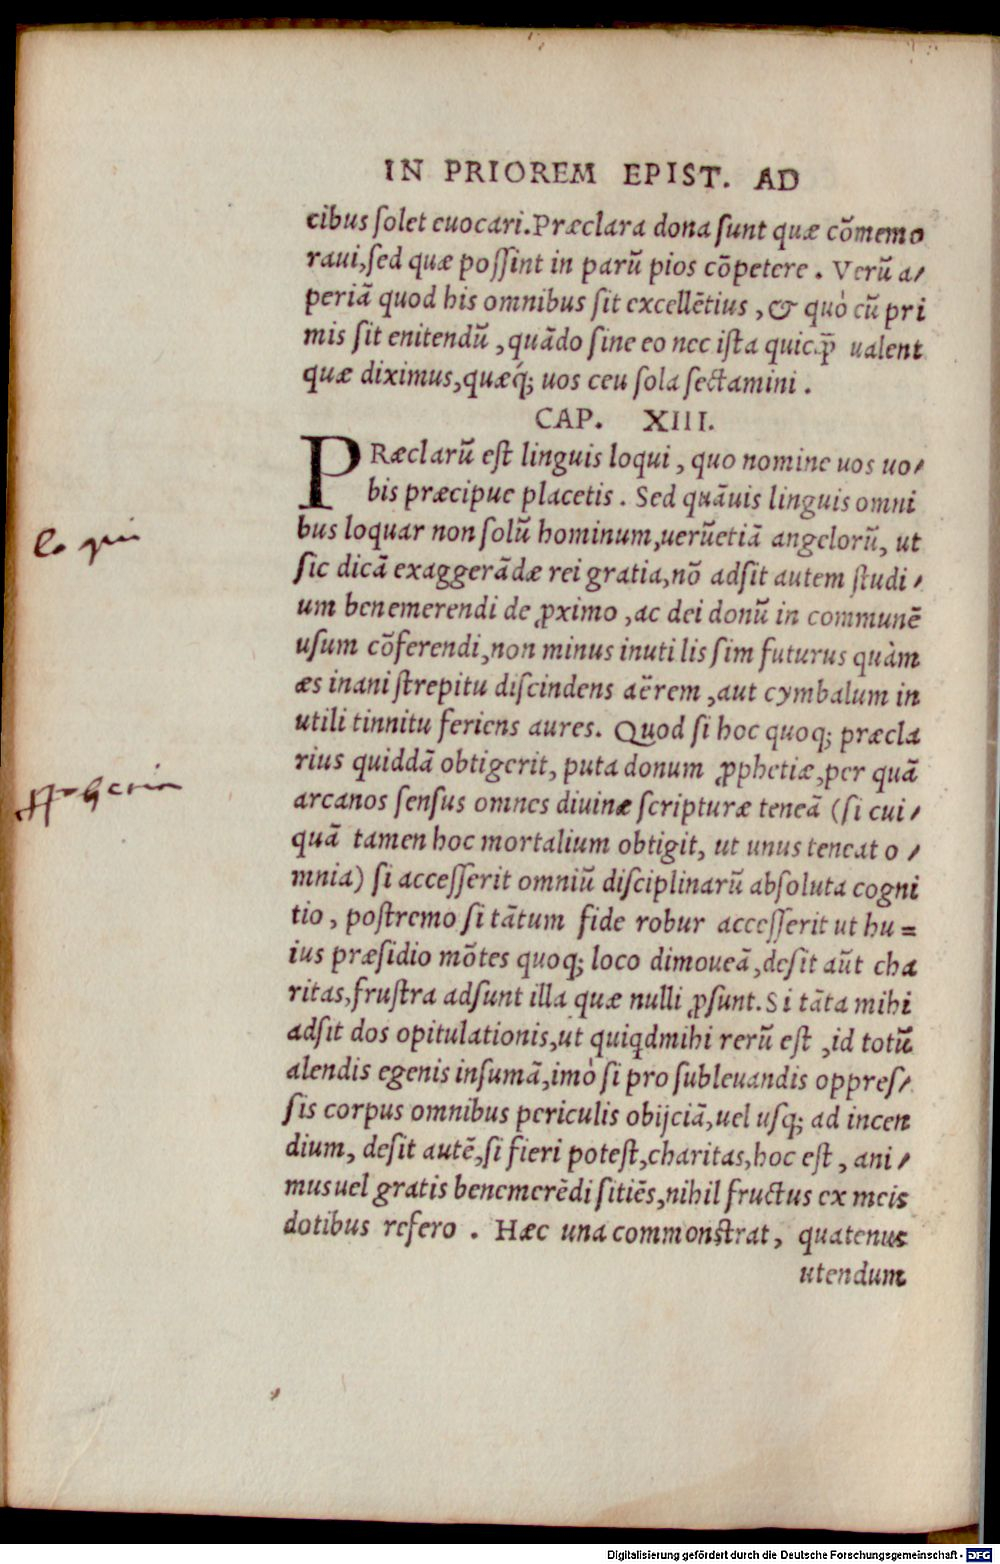 IN PRIOREM EPIST. AD
cibus ſolet euocari. Præclara dona ſunt quæ cõmemo
raui, ſed quæ poſſint in parũ pios cõpetere. Verũ a⸗
periã quod his omnibus ſit excellẽtius, & quò cũ pri
mis ſit enitendũ, quãdo ſine eo nec iſta quicꝙ̃ ualent
quæ diximus, quæq́; uos ceu ſola ſectamini.
CAP. XIII.
PRæclarũ eſt linguis loqui, quo nomine uos uo⸗
bis præcipue placetis. Sed quãuis linguis omni
bus loquar non ſolũ hominum, uerũetiã angelorũ, ut
ſic dicã exaggerãdæ rei gratia, nõ adſit autem ſtudi⸗
um benemerendi de ꝓximo, ac dei donũ in communẽ
uſum cõferendi, non minus inutilis ſim futurus quàm
æs inani ſtrepitu diſcindens aërem, aut cymbalum in
utili tinnitu feriens aures. Quod ſi hoc quoq; præcla
rius quiddã obtigerit, puta donum ꝓphetiæ, per quã
arcanos ſenſus omnes diuinæ ſcripturæ teneã (ſi cui⸗
quã tamen hoc mortalium obtigit, ut unus teneat o⸗
mnia) ſi acceſſerit omniũ diſciplinarũ abſoluta cogni
tio, poſtremo ſi tãtum fide robur acceſſerit ut hu=
ius præſidio mõtes quoq; loco dimoueã, deſit aũt cha
ritas, fruſtra adſunt illa quæ nulli ꝓſunt. Si tãta mihi
adſit dos opitulationis, ut quiqdmihi rerũ eſt, id totũ
alendis egenis inſumã, imò ſi pro ſubleuandis oppreſ⸗
ſis corpus omnibus periculis obijciã, uel uſq; ad incen
dium, deſit autẽ, ſi fieri poteſt, charitas, hoc eſt, ani⸗
mus uel gratis benemerẽdi ſitiẽs, nihil fructus ex meis
dotibus refero. Hæc una commonſtrat, quatenus
utendum
loqui
Digitalisierung gefördert durch die Deutsche Forschungsgemeinschaft - DFG